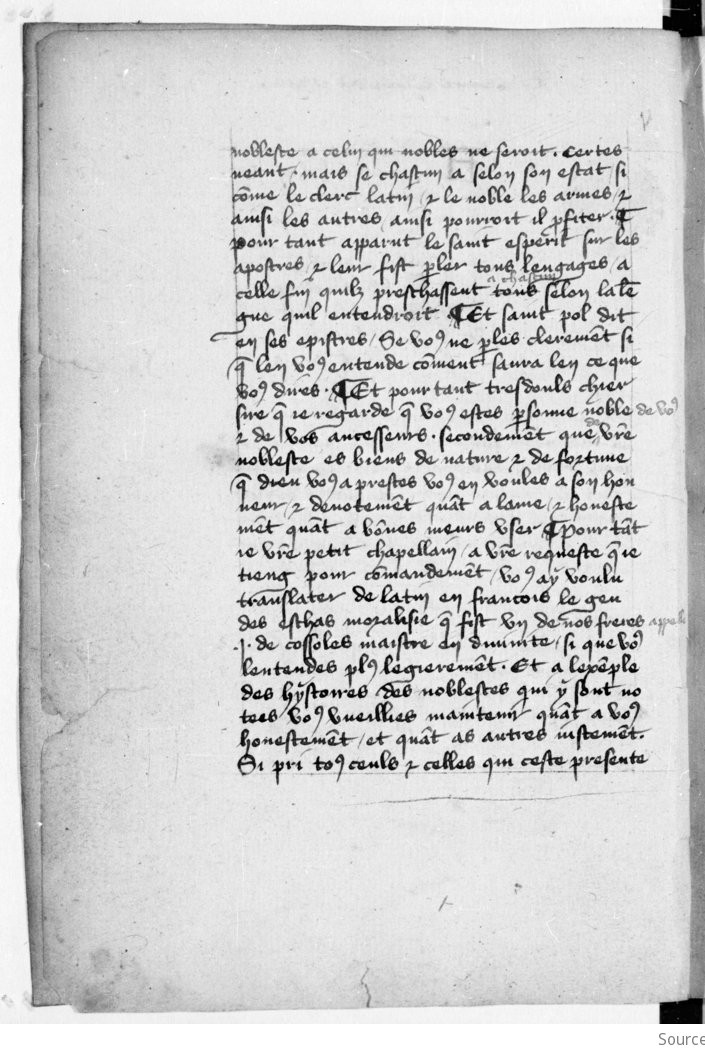 noblesce a celui qui nobles ne seroit . Certes
neant / mais se chascun a selon son estat / si
cõme le clerc latin / ⁊ le noble les armes / ⁊
ainsi les autres / ainsi pourroit il ꝓfiter . ¶
pour tant apparut le saint esperit sur les
apostres / ⁊ leur fist ꝑler tous lengages / a
celle fin quilz preschassent a chascun tous selon la lẽ
gue quil entendroit . ¶ Et saint pol dit
en ses epistres / Se voꝰ ne ꝑles cleremẽt si
q̃ len voꝰ entende cõment saura len ce que
voꝰ dires . ¶ Et pour tant tresdouls chier
sire q̃ ie regarde q̃ voꝰ estes ꝑsonne noble de voꝰ
⁊ de vos ancesseurs . secondement que de vr̃e
noblesce es biens de nature ⁊ de fortune
q̃ dieu voꝰ a prestes voꝰ en voules a son hon
neur / ⁊ deuotemẽt quãt a lame / ⁊ honeste
mẽt quãt a bõnes meurs vser ¶ Pour tãt
ie vr̃e petit chapellain / a vr̃e requeste q̃ ie
tieng pour cõmandemẽt / voꝰ aÿ voulu
translater de latin en francois le geu
des eschas moralisie q̃ fist vn de nos freres appelle
.J. de cossoles maistre en diuinite / si que voꝰ
lentendes plꝰ legieremẽt . Et a lexẽple
des hÿstoires des noblesces qui ÿ sont no
tees voꝰ vueillies maintenir quãt a voꝰ
honestemẽt / et quãt as autres iustemẽt .
Si pri toꝰ ceuls ⁊ celles qui ceste presente
Source